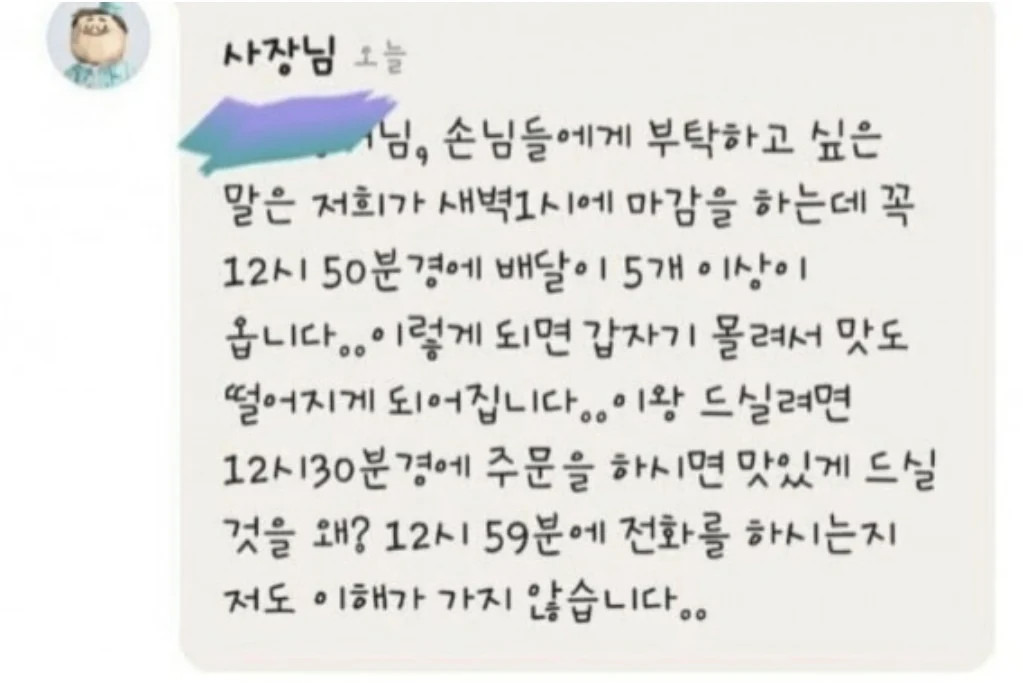 사장님 오늘
님, 손님들에게 부탁하고 싶은
말은 저희가 새벽1시에 마감을 하는데 꼭
12시 50분경에 배달이 5개 이상이
옵니다。。이렇게 되면 갑자기 몰려서 맛도
떨어지게 되어집니다。。이왕 드실려면
12시30분경에 주문을 하시면 맛있게 드실
것을 왜? 12시 59분에 전화를 하시는지
저도 이해가 가지 않습니다。。